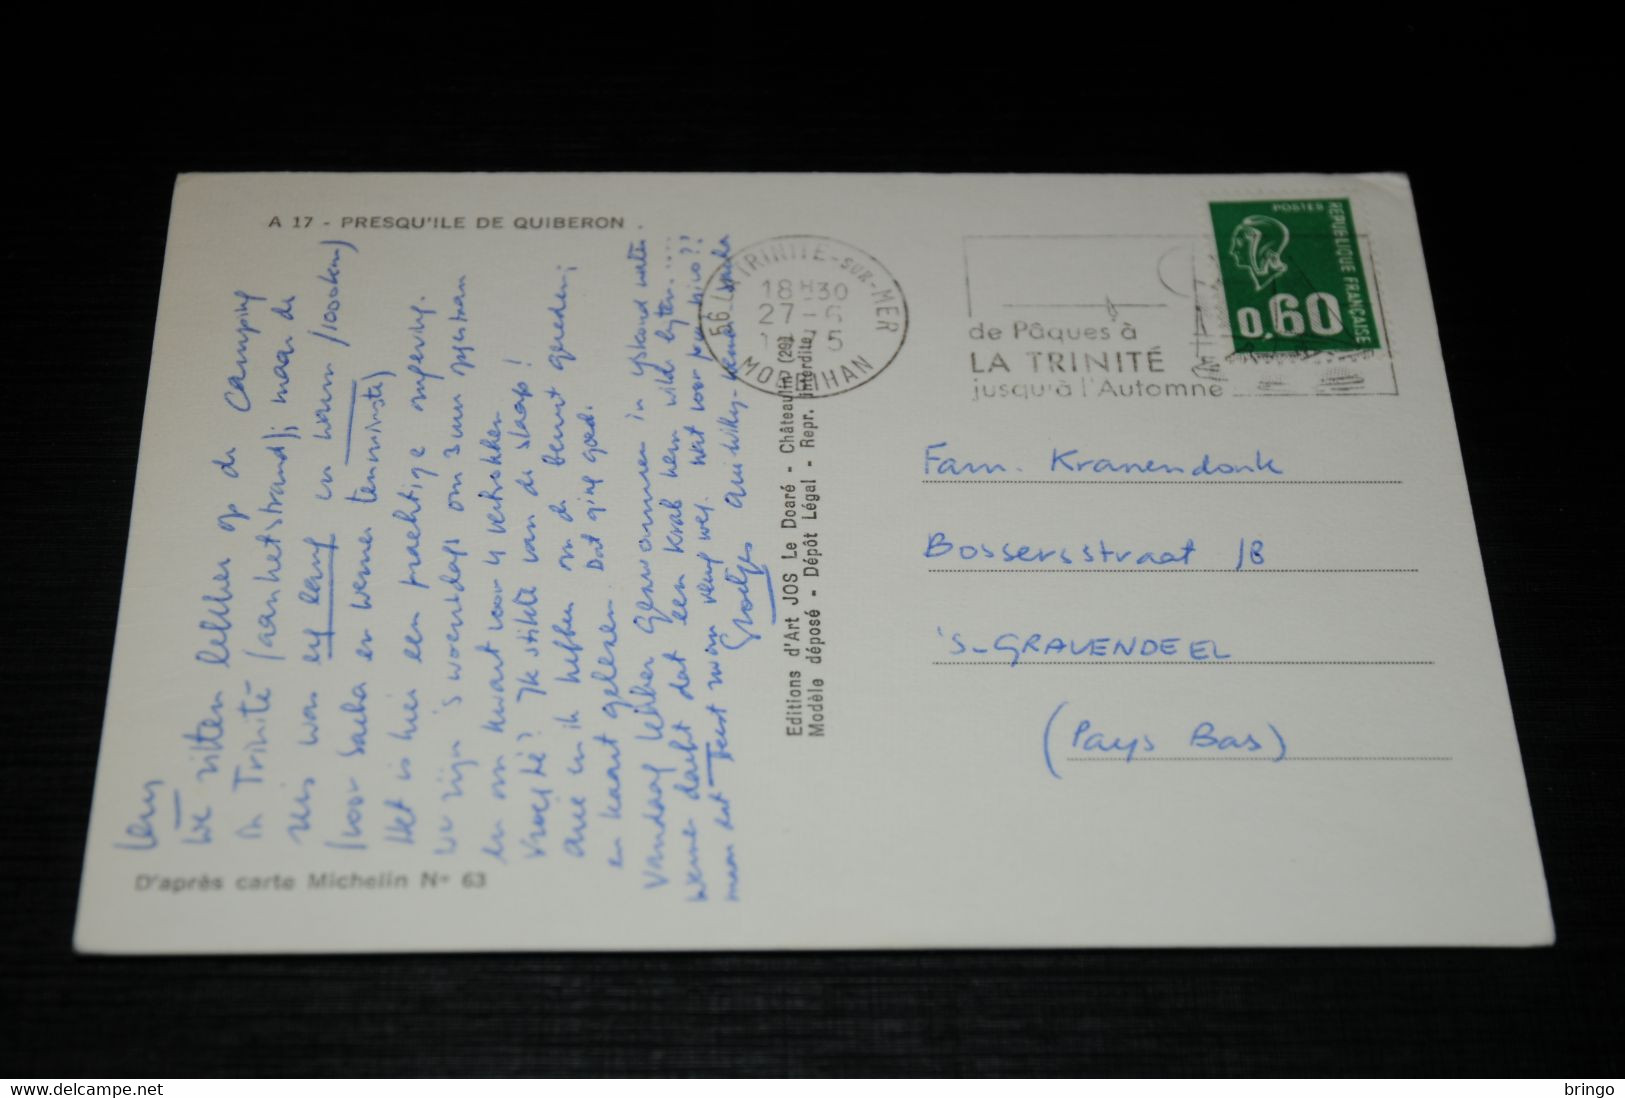 A 17 - PRESQU'ILE DE QUIBERON
We zitten lekker op de Camping
in Trinité (aan het strand); maar de
reis was erg lang en warm (1000km)
(voor Sacha en Werner tenminste)
Het is hier een prachtige omgeving.
We zijn 's woensdags om 3 uur opgestaan
en om kwart voor 4 vertrokken
Vroeg hè? Ik stikte van de slaap!
en ik hebben om de beurt gereden;
en kaart gelezen. Dat ging goed.
Vandaag lekker gezwommen in ijskoud water.
Werner dacht dat een krab hem wild byten....
maar dat
Groetjes
D'après carte Michelin N° 63
Editions d'Art JOS Le Doaré - Châteaulin (29)
Modèle déposé - Dépôt Légal - Repr. interdite
56 LA TRINITE-SUR-MER
18H30
27
MORBIHAN
de Pâques à
LA TRINITÉ
jusqu'à l'Automne
POSTES
REPUBLIQUE FRANÇAISE
0,60
Fam. Kranendonk
Bossersstraat 18
's-GRAVENDEEL
(Pays Bas)
bringo